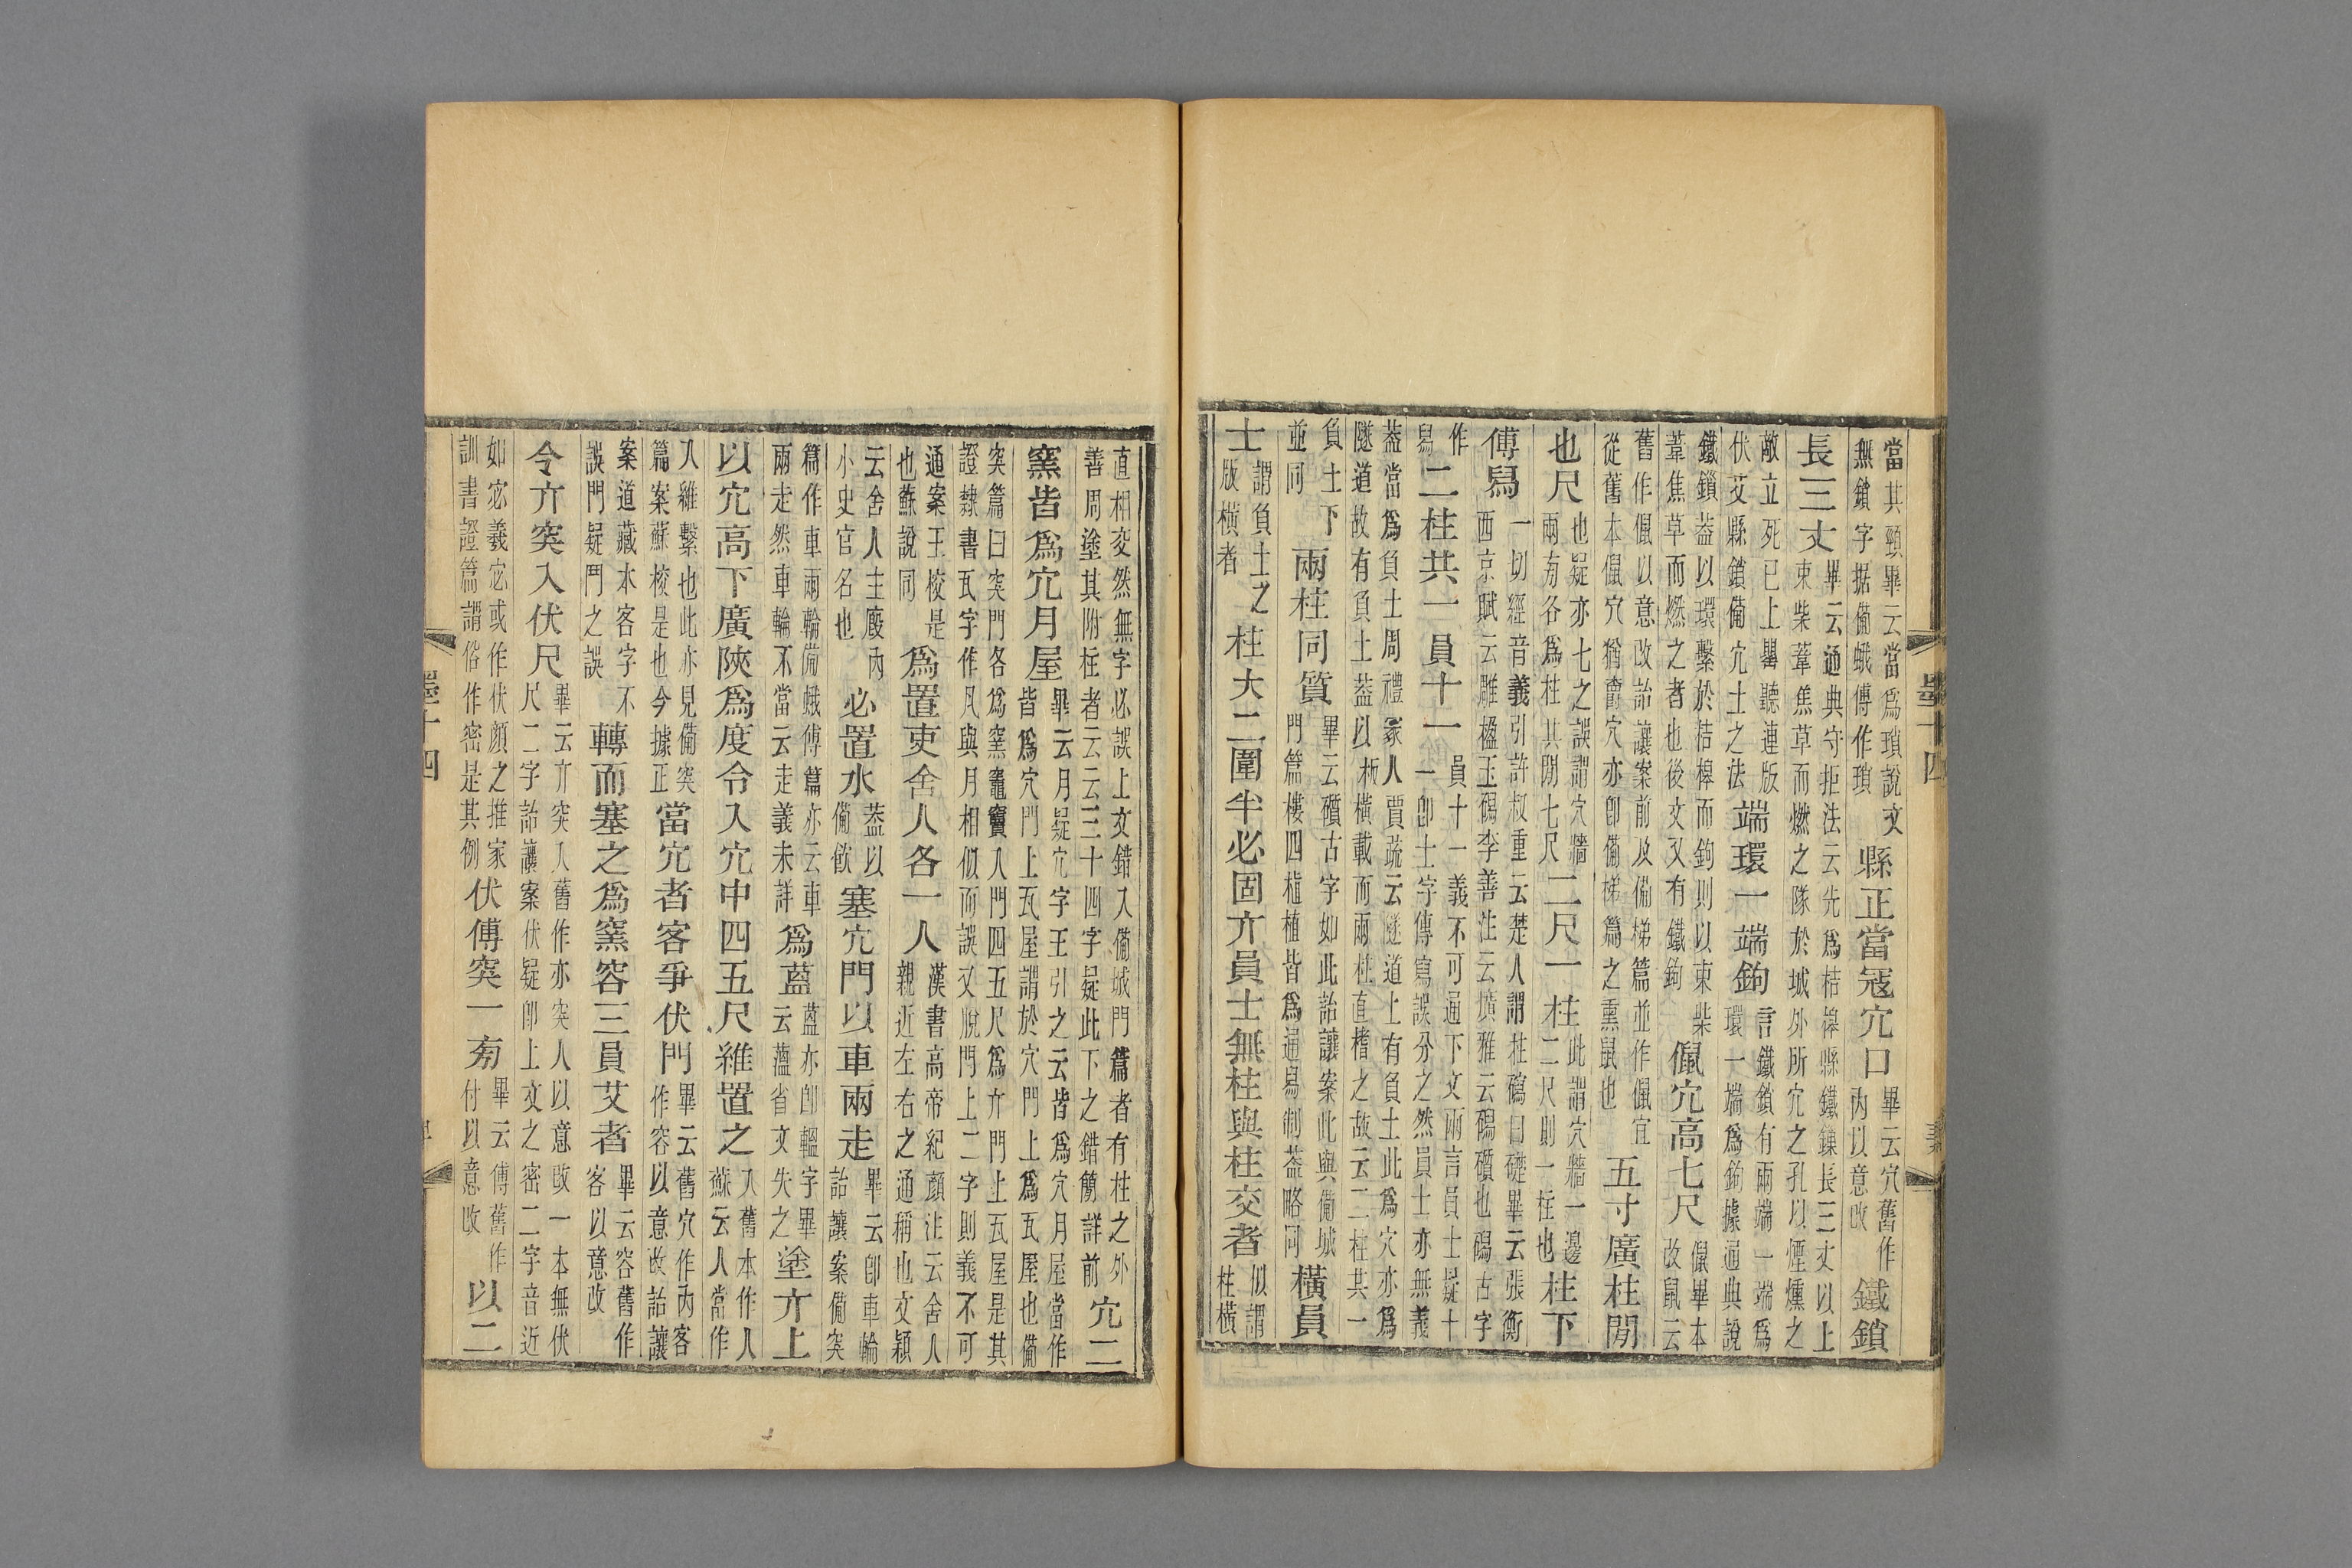 當其頸畢云當爲瑣說文無鎖字据備蛾傅作瑣縣正當寇穴口畢云穴舊作內以意改鐵鎖
長三丈畢云通典守拒法云先爲桔槔縣鐵鏁長三丈以上束柴葦焦草而燃之隊於城外所穴之孔以煙燻之
敵立死已上罌聽連版伏艾縣鎖備穴土之法端環一端鉤言鐵鎖有兩端一端爲環一端爲鉤據通典說
鐵鎖蓋以環繫於桔槔而鉤則以束柴葦焦草而燃之者也後文又有鐵鉤儠穴高七尺儠畢本改鼠云
舊作儠以意改詒讓案前及備梯篇並作儠宜從舊本儠穴猶竇穴亦卽備梯篇之熏鼠也五寸廣柱閒
也尺也疑亦七之誤謂穴牆兩旁各爲柱其閒七尺二尺一柱此謂穴牆一邊二尺則一柱也柱下
傅舄一切經音義引許叔重云楚人謂柱磶曰礎畢云張衡西京賦云雕楹玉磶李善注云廣雅云磶礩也磶古字
作舄二柱共一員十一員十一義不可通下文兩言員士疑十一卽士字傳寫誤分之然員士亦無義
蓋當爲負土周禮冢人賈疏云隧道上有負土此爲穴亦爲隧道故有負土蓋以板橫載而兩柱直榰之故云二柱共一
負土下並同兩柱同質畢云礩古字如此詒讓案此與備城門篇樓四植植皆爲通舄制蓋略同橫員
士謂負土之版橫者柱大二圍半必固亓員士無柱與柱交者似謂柱橫
直相交然無字必誤上文錯入備城門篇者有柱之外善周塗其附柱者云云三十四字疑此下之錯簡詳前穴二
窯皆爲穴月屋畢云月疑穴字王引之云皆爲穴月屋當作皆爲穴門上瓦屋謂於穴門上爲瓦屋也備
突篇曰突門各爲窯竈竇入門四五尺爲亓門上瓦屋是其證隸書瓦字作凡與月相似而誤又脫門上二字則義不可
通案王校是也蘇說同爲置吏舍人各一人漢書高帝紀顏注云舍人親近左右之通稱也文穎
云舍人主廄內小史官名也必置水蓋以備飲塞穴門以車兩走畢云卽車輪詒讓案備突
篇作車兩輪備蛾傅篇亦云車兩走然車輪不當云走義未詳爲蒀蒀亦卽轀字畢云薀省文失之塗亓上
以穴高下廣陜爲度令入穴中四五尺維置之入舊本作人蘇云人當作
入維繫也此亦見備突篇案蘇校是也今據正當穴者客爭伏門畢云舊穴作內客作容以意改詒讓
案道藏本客字不誤門疑鬥之誤轉而塞之爲窯容三員艾者畢云容舊作客以意改
令亓突入伏尺畢云亓突入舊作亦突人以意改一本無伏尺二字詒讓案伏疑卽上文之密二字音近
如宓羲宓或作伏顏之推家訓書證篇謂俗作密是其例伏傅突一旁畢云傅舊作付以意改以二
墨十四